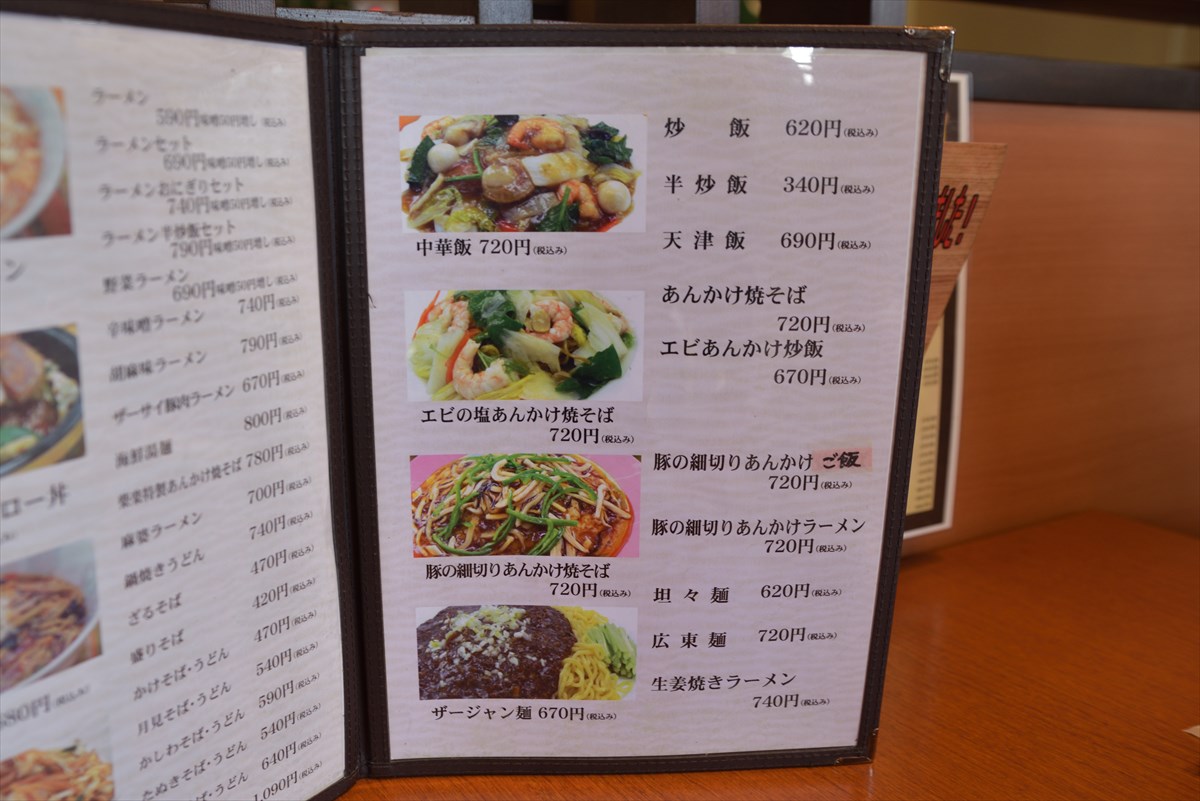 ン
ロー丼
680円(税込み)
ラーメン
590円味噌50円増し(税込み)
ラーメンセット
690円味噌50円増し(税込み)
ラーメンおにぎりセット
740円味噌50円増し(税込み)
ラーメン半炒飯セット
790円味噌50円増し(税込み)
野菜ラーメン
690円味噌50円増し(税込み)
辛味噌ラーメン 740円(税込み)
胡麻味ラーメン 790円(税込み)
ザーサイ豚肉ラーメン 670円(税込み)
海鮮湯麺 800円(税込み)
特製あんかけ焼そば 780円(税込み)
麻婆ラーメン 700円(税込み)
鍋焼きうどん 740円(税込み)
ざるそば 470円(税込み)
盛りそば 420円(税込み)
かけそば・うどん 470円(税込み)
月見そば・うどん 540円(税込み)
かしわそば・うどん 590円(税込み)
たぬきそば・うどん 540円(税込み)
そば・うどん 640円(税込み)
1,090円(税込み)
中華飯 720円(税込み)
エビの塩あんかけ焼そば
720円(税込み)
豚の細切りあんかけ焼そば
720円(税込み)
ザージャン麺 670円(税込み)
炒飯 620円(税込み)
半炒飯 340円(税込み)
天津飯 690円(税込み)
あんかけ焼そば
720円(税込み)
エビあんかけ炒飯
670円(税込み)
豚の細切りあんかけ ご飯
720円(税込み)
豚の細切りあんかけラーメン
720円(税込み)
坦々麺 620円(税込み)
広東麺 720円(税込み)
生姜焼きラーメン
740円(税込み)